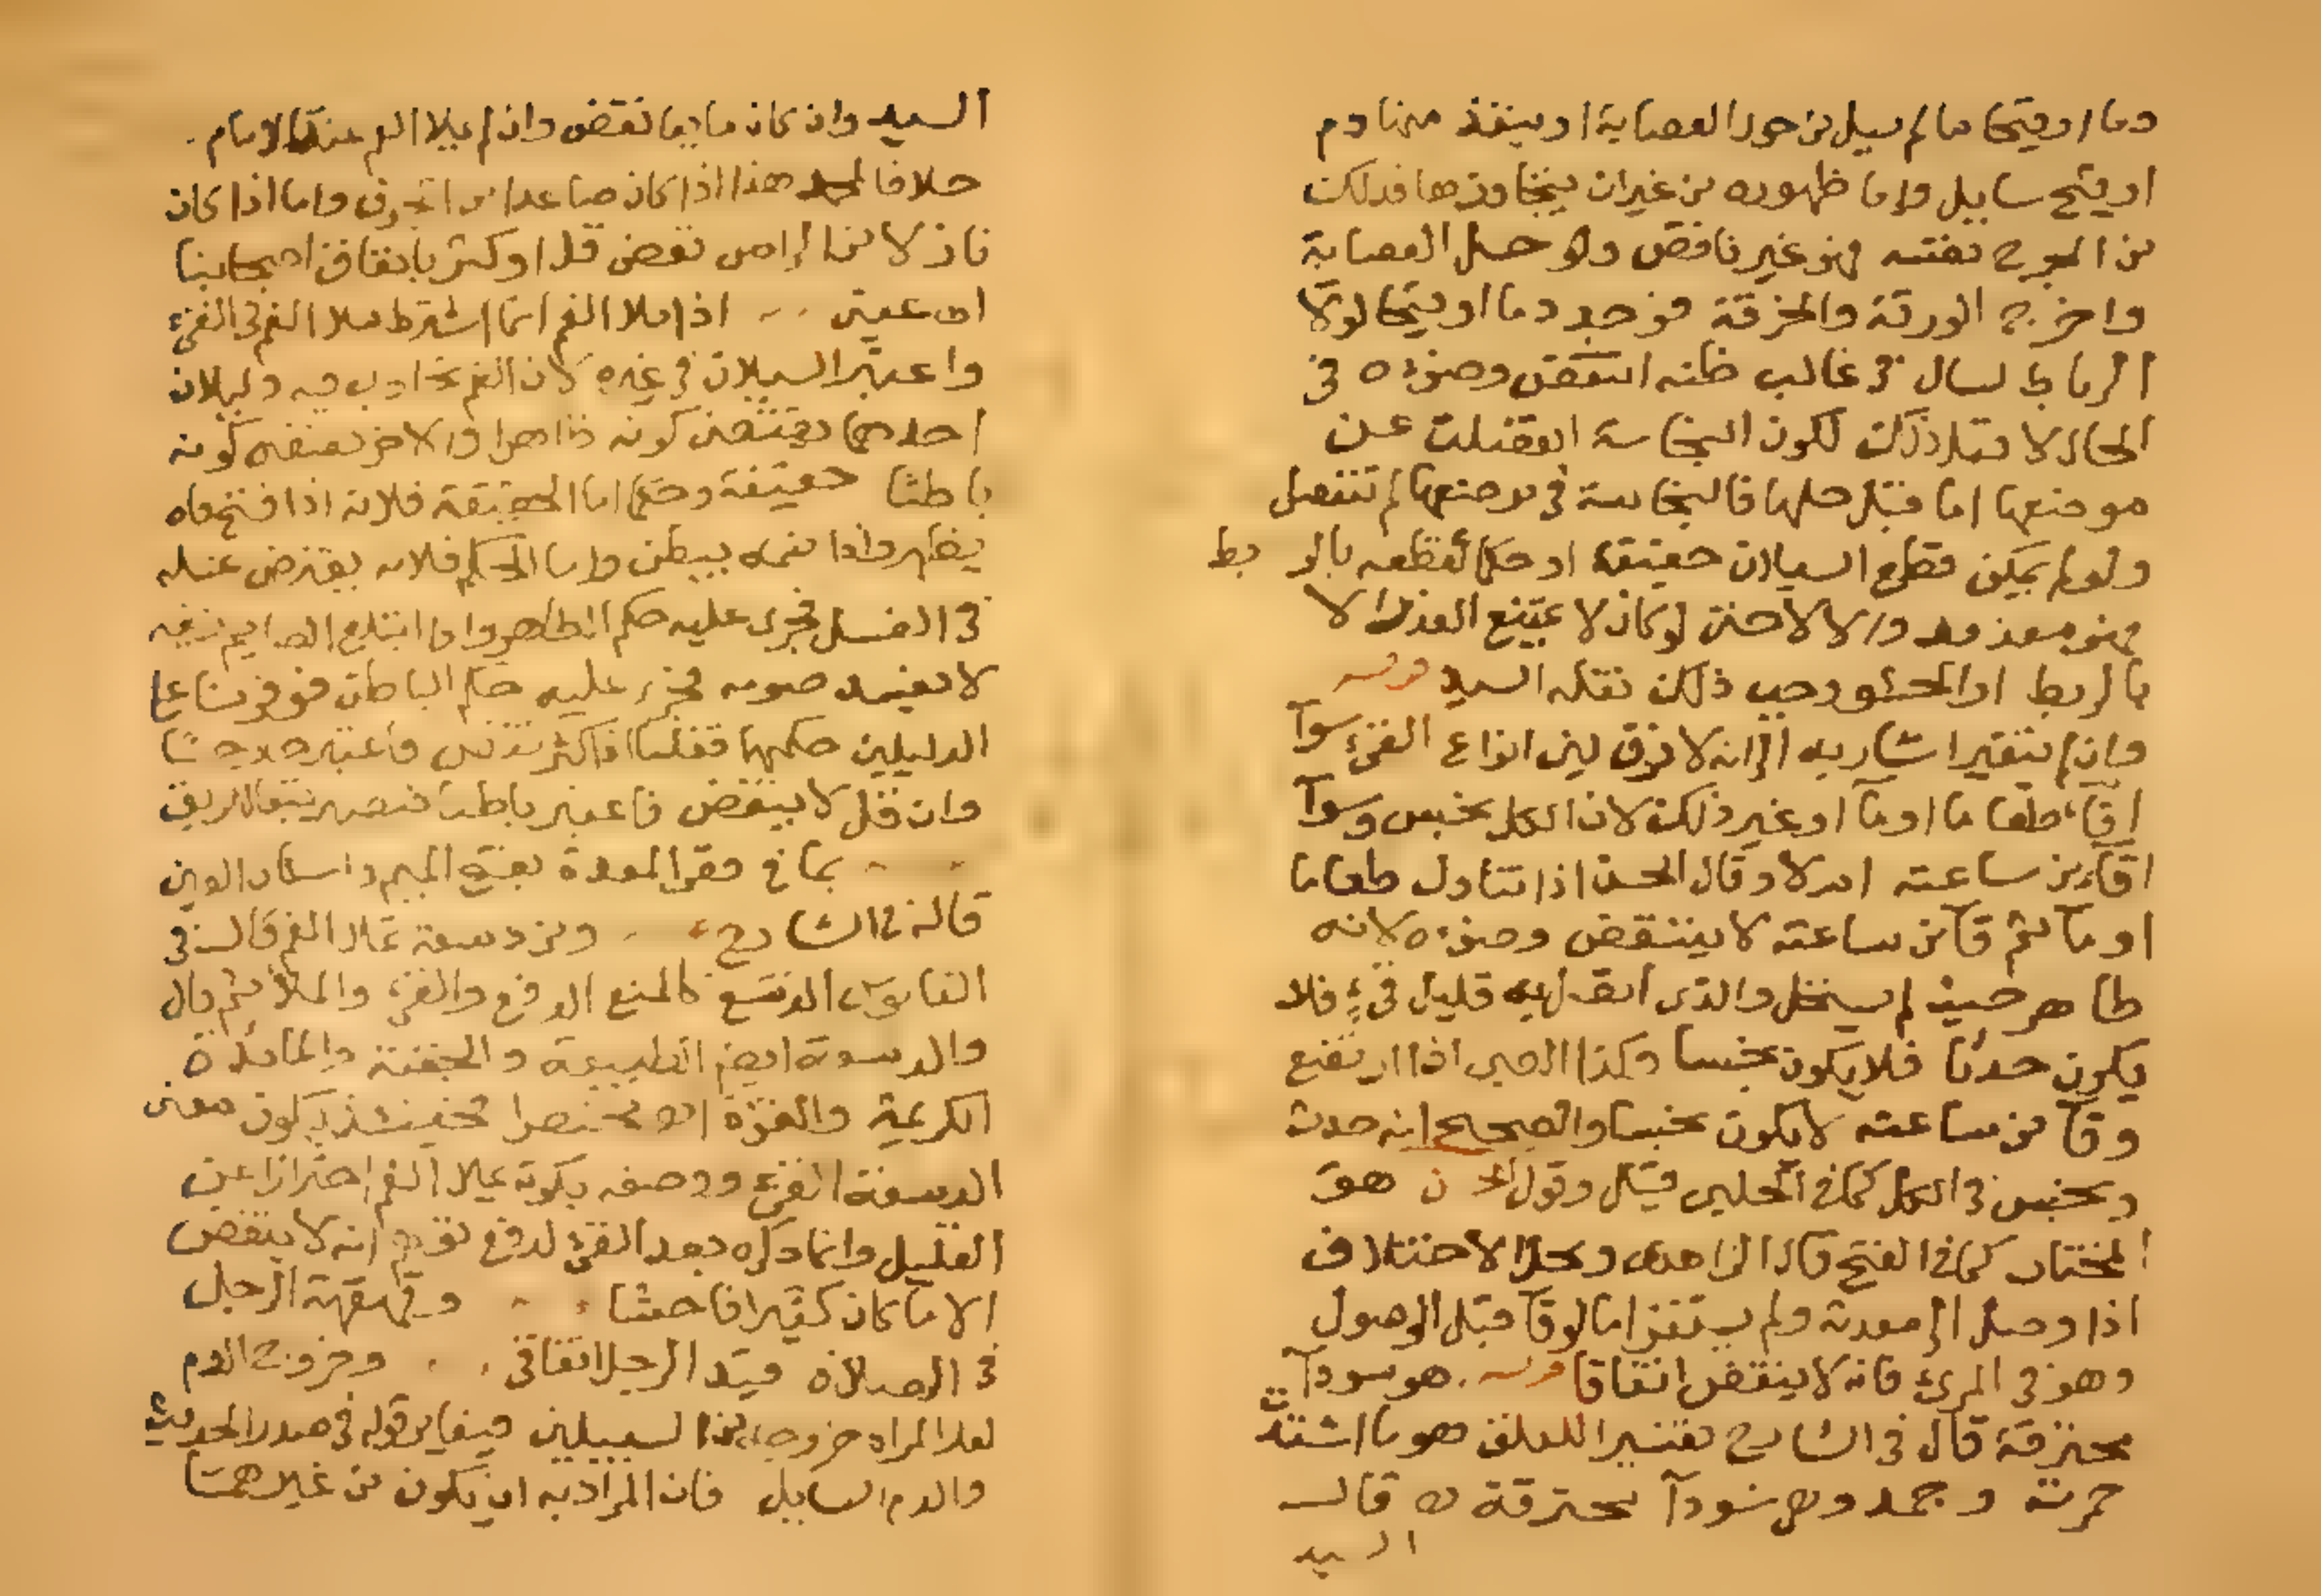 دما او قيحا ما لم يسل من حول العصابة او ينفذ منها دم
او قيح سايل واما ظهوره من غير ان يتجاوزها فذلك
من الجرح نفسه فهو غير ناقض ولو حل العصابة
واخرج الورقة والخرقة فوجد دما او قيحا لولا
الرباط لسال في غالب ظنه انتقض وضوءه في
الحال لا قبل ذلك لكون النجاسة انفصلت عن
موضعها اما قبل حلها فالنجاسة في موضعها لم تنفصل
ولو لم يمكن قطع السيلان حقيقة او حكما لقطعه بالربط
فهو معذور والا لا حتى لو كان لا يمتنع العذر الا
بالربط او الحشو وجب ذلك نقله السيد قوله
وان لم يتغير اشار به الى انه لا فرق بين انواع القئ سوآ
اقآء طعاما او مآ او غير ذلك لان الكل نجس وسوآ
اقآء من ساعته ام لا وقال الحسن اذا تناول طعاما
او مآ ثم قآ من ساعته لا ينتقض وضوءه لانه
طاهر حيث لم يستحل والذى اتصل به قليل قئ فلا
يكون حدثا فلا يكون نجسا وكذا الصبى اذا ارتضع
وقآ من ساعته لا يكون نجسا والصحيح انه حدث
ونجس في الكل كما في الحلبي قيل وقول الحسن هو
المختار كما في الفتح قال الزاهدى ومحل الاختلاف
اذا وصل الى معدته ولم يستقر اما لو قآ قبل الوصول
وهو في المرئ فانه لا ينقض اتفاقا قوله هو سودآ
محترقة قال في الشارح تفسيرا للعلق هو ما اشتدت
حمرته وجمد وهى سودآ محترقة اه قال
السيد
السيد وان كان مايعا نقض وان لم يملا الفم عند الامام
خلافا لمحمد هذا اذا كان صاعدا من الجوف واما اذا كان
نازلا من الراس نقض قل او كثر باتفاق اصحابنا
اه عينى اذا ملا الفم انما اشترط ملا الفم في القئ
واعتبر السيلان في غيره لان الفم تجاذب فيه دليلان
احدهما يقتضى كونه ظاهرا والاخر يقتضى كونه
باطنا حقيقة وحكما اما الحقيقة فلانه اذا فتح فاه
يظهر واذا ضمه يبطن واما الحكم فلانه يفترض غسله
في الغسل فجرى عليه حكم الظاهر واما ابتلع الصايم ريقه
لا يفسد صومه فجرى عليه حكم الباطن فوفرنا على
الدليلين حكمهما فقلنا اذا كثر ينقض فاعتبر خارجا
وان قل لا ينقض فاعتبر باطنا فيصير تبعا للريق
بما في قعر المعدة بفتح الميم واسكان العين
قاله في الشارح ومن دسعة تملا الفم قال في
القاموس الدسع كالمنع الدفع والقئ والملأ ثم قال
والدسعة ايضا الطبيعة والجفنة والمائدة
الكريمة والقوة اه مختصرا فحينئذ يكون معنى
الدسعة القئ ووصفه بكونه يملا الفم احترازا عن
القليل وانما ذكره بعد القئ لدفع توهم انه لا ينقض
الا ما كان كثيرا فاحشا وقهقهة الرجل
في الصلاة قيد الرجل اتفاقى وخروج الدم
لعل المراد خروجه من السبيلين فيغاير قوله في صدر الحديث
والدم السايل فان المراد به ان يكون من غيرهما